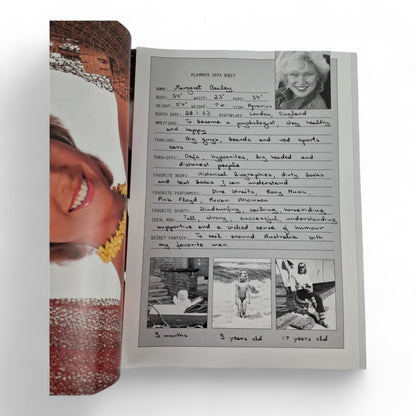 PLAYMATE DATA SHEET
NAME: Margaret Bailey
BUST: 34" WAIST: 23" HIPS: 34"
HEIGHT: 5'4" WEIGHT: SIGN Aquarius
BIRTH DATE 28.1.63 BIRTHPLACE London, England
AMBITIONS: To become a psychologist, stay healthy
and happy
TURN-ONS: Big guys, beards and red sports
cars
TURN-OFFS: Dogs, hypocrites, big headed and
dishonest people
FAVORITE BOOKS: Historical biographies, dirty books
and text books I can understand
FAVORITE PERFORMERS: Dire Straits, Roxy Music,
Pink Floyd, Rowan Atkinson
FAVORITE SPORTS: Windsurfing, sailing, horseriding
IDEAL MAN: Tall, strong, successful, understanding,
supportive and a wicked sense of humour
SECRET FANTASY: To sail around Australia with
my favorite man
9 months 9 years old 17 years old